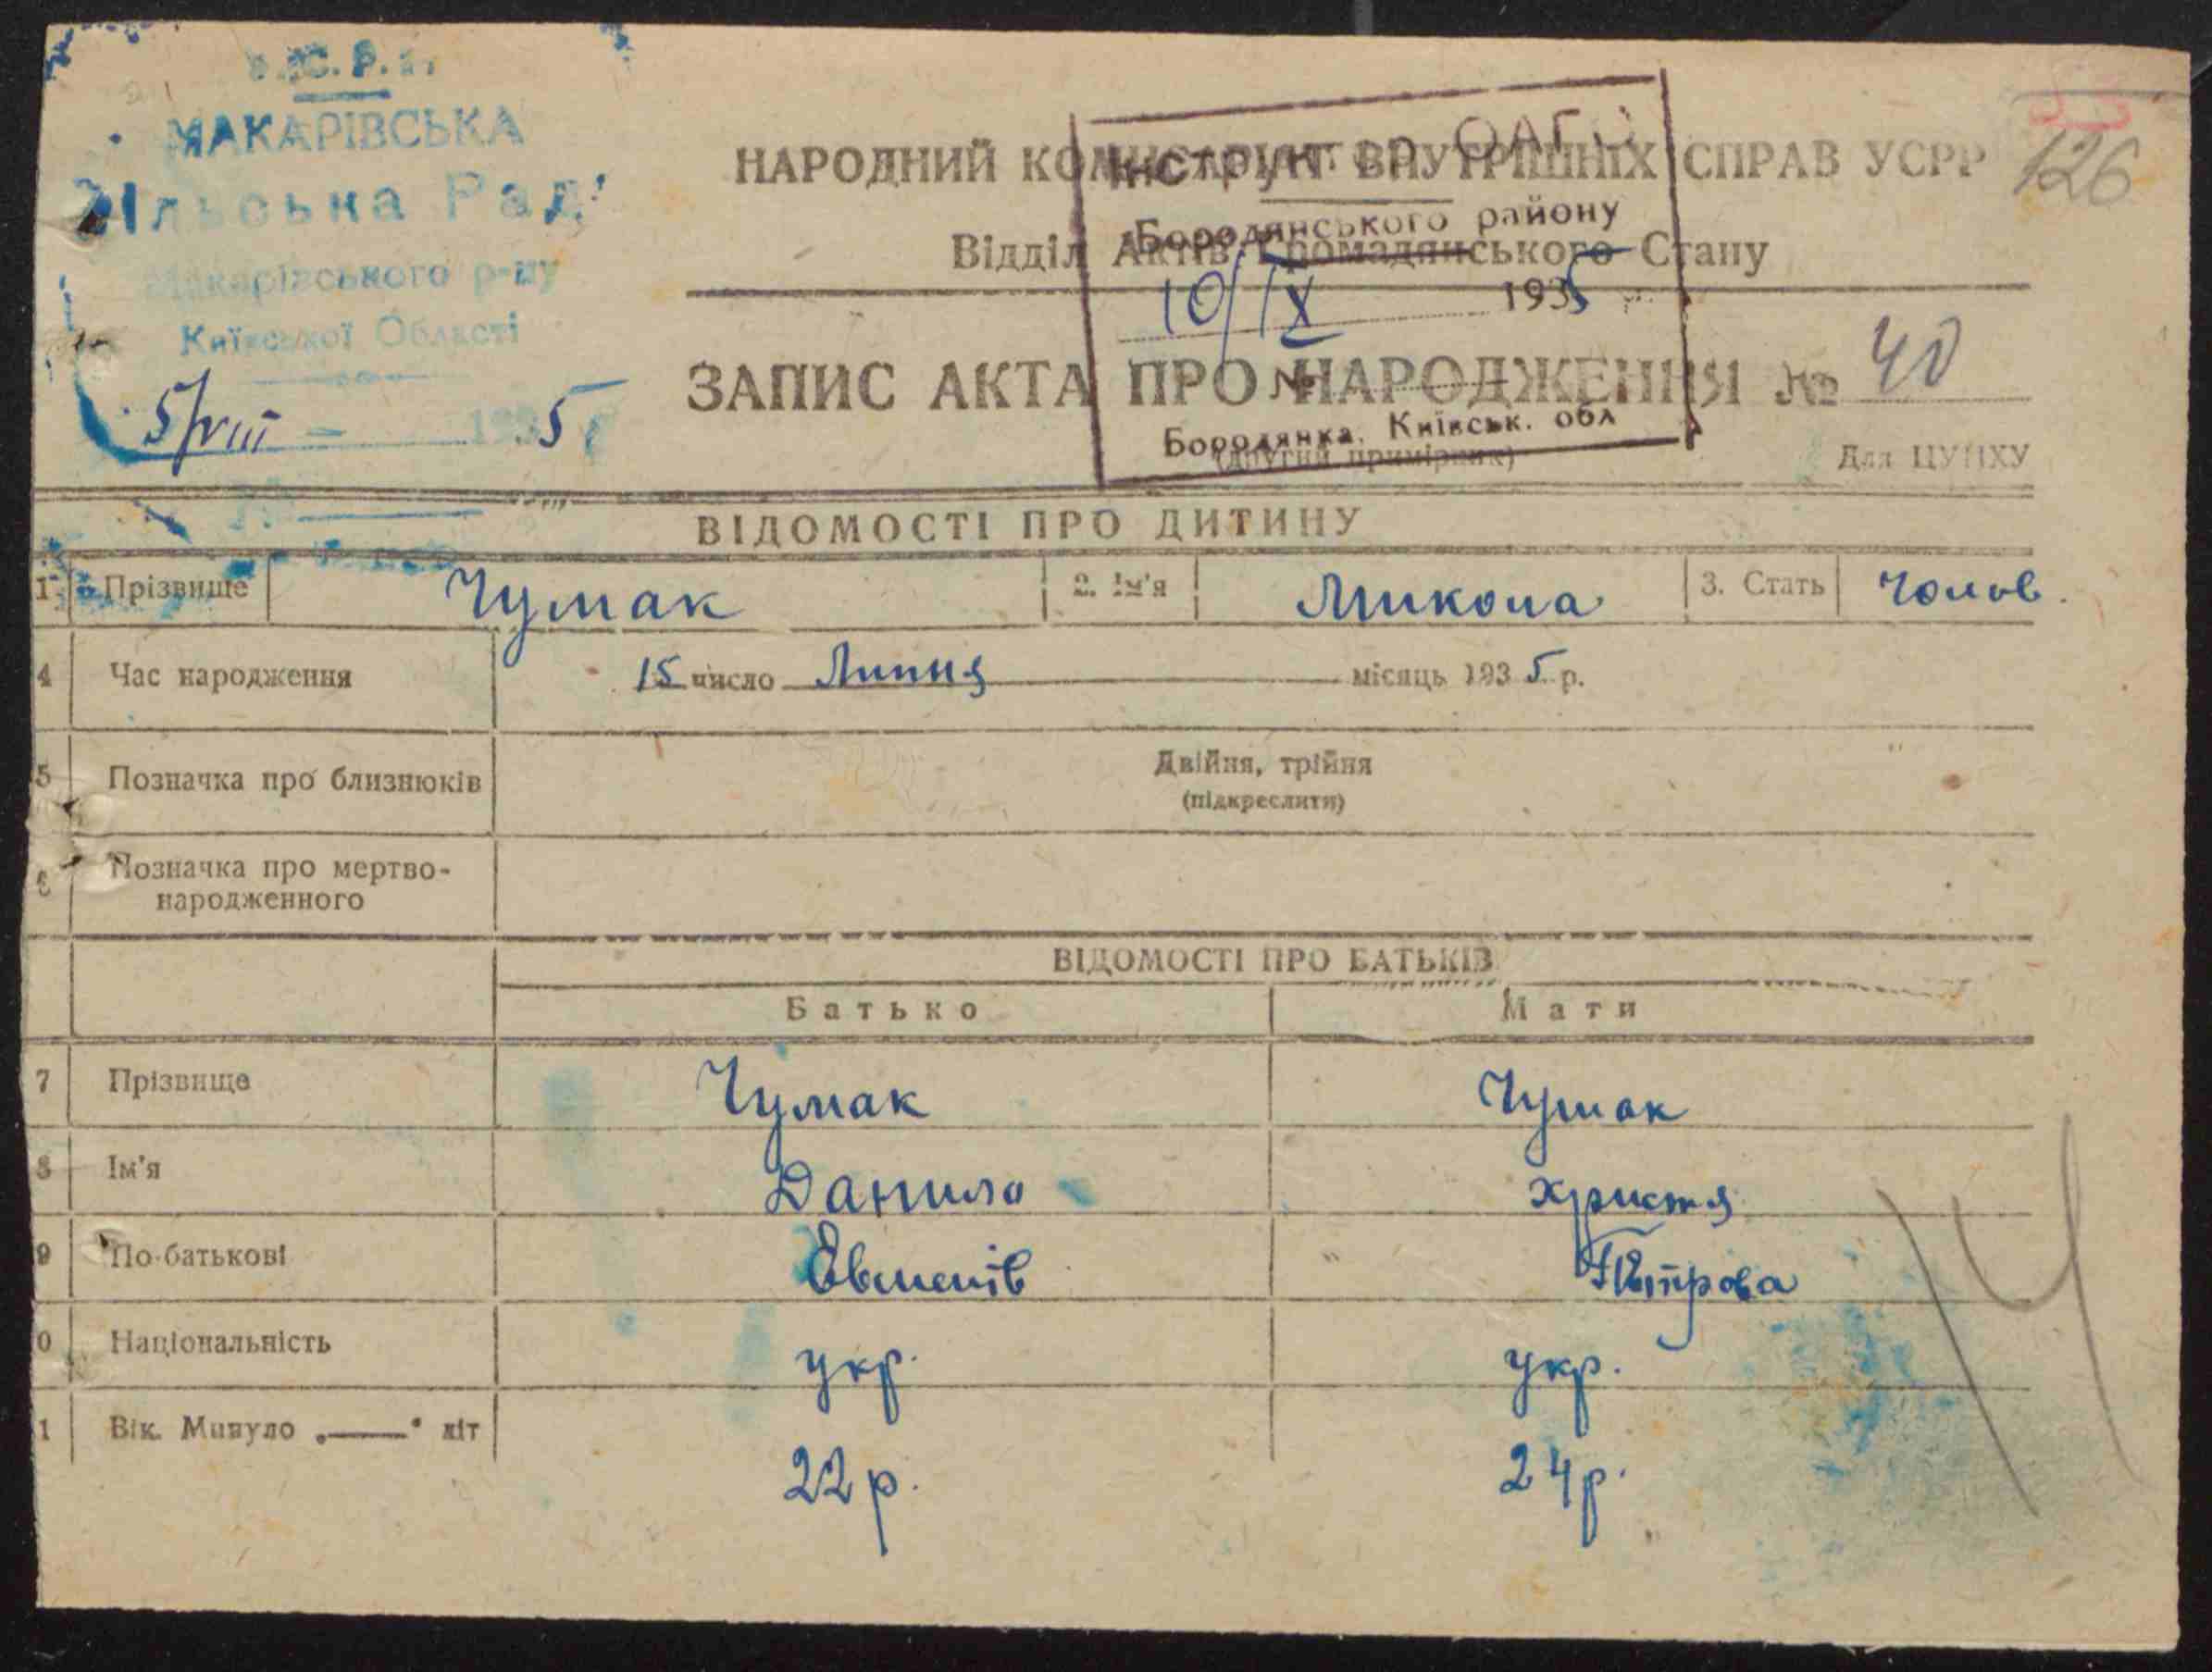 МАКАРІВСЬКА
Сільська Рада
Макарівського р-ну
Київської Області
5/VIII 1935
НАРОДНИЙ КОМІСАРІЯТ ВНУТРІШНІХ СПРАВ УСРР
126
Відділ Актів Громадянського Стану
Інструктор ОАГС
Бородянського району
10/IX 1935
№
Бородянка, Київськ. обл
ЗАПИС АКТА ПРО НАРОДЖЕННЯ № 40
(другий примірник)
Для ЦУНХУ
ВІДОМОСТІ ПРО ДИТИНУ
1 Прізвище Чумак 2. Ім'я Микола 3. Стать Чолов.
4 Час народження 15 число Липня місяць 1935 р.
5 Позначка про близнюків Двійня, трійня
(підкреслити)
6 Позначка про мертво-
народженного
ВІДОМОСТІ ПРО БАТЬКІВ
Батько Мати
7 Прізвище Чумак Чумак
8 Ім'я Данило Христя
9 По-батькові Евменів Петрова
0 Національність укр. укр.
1 Вік. Минуло „——“ літ 22 р. 24 р.